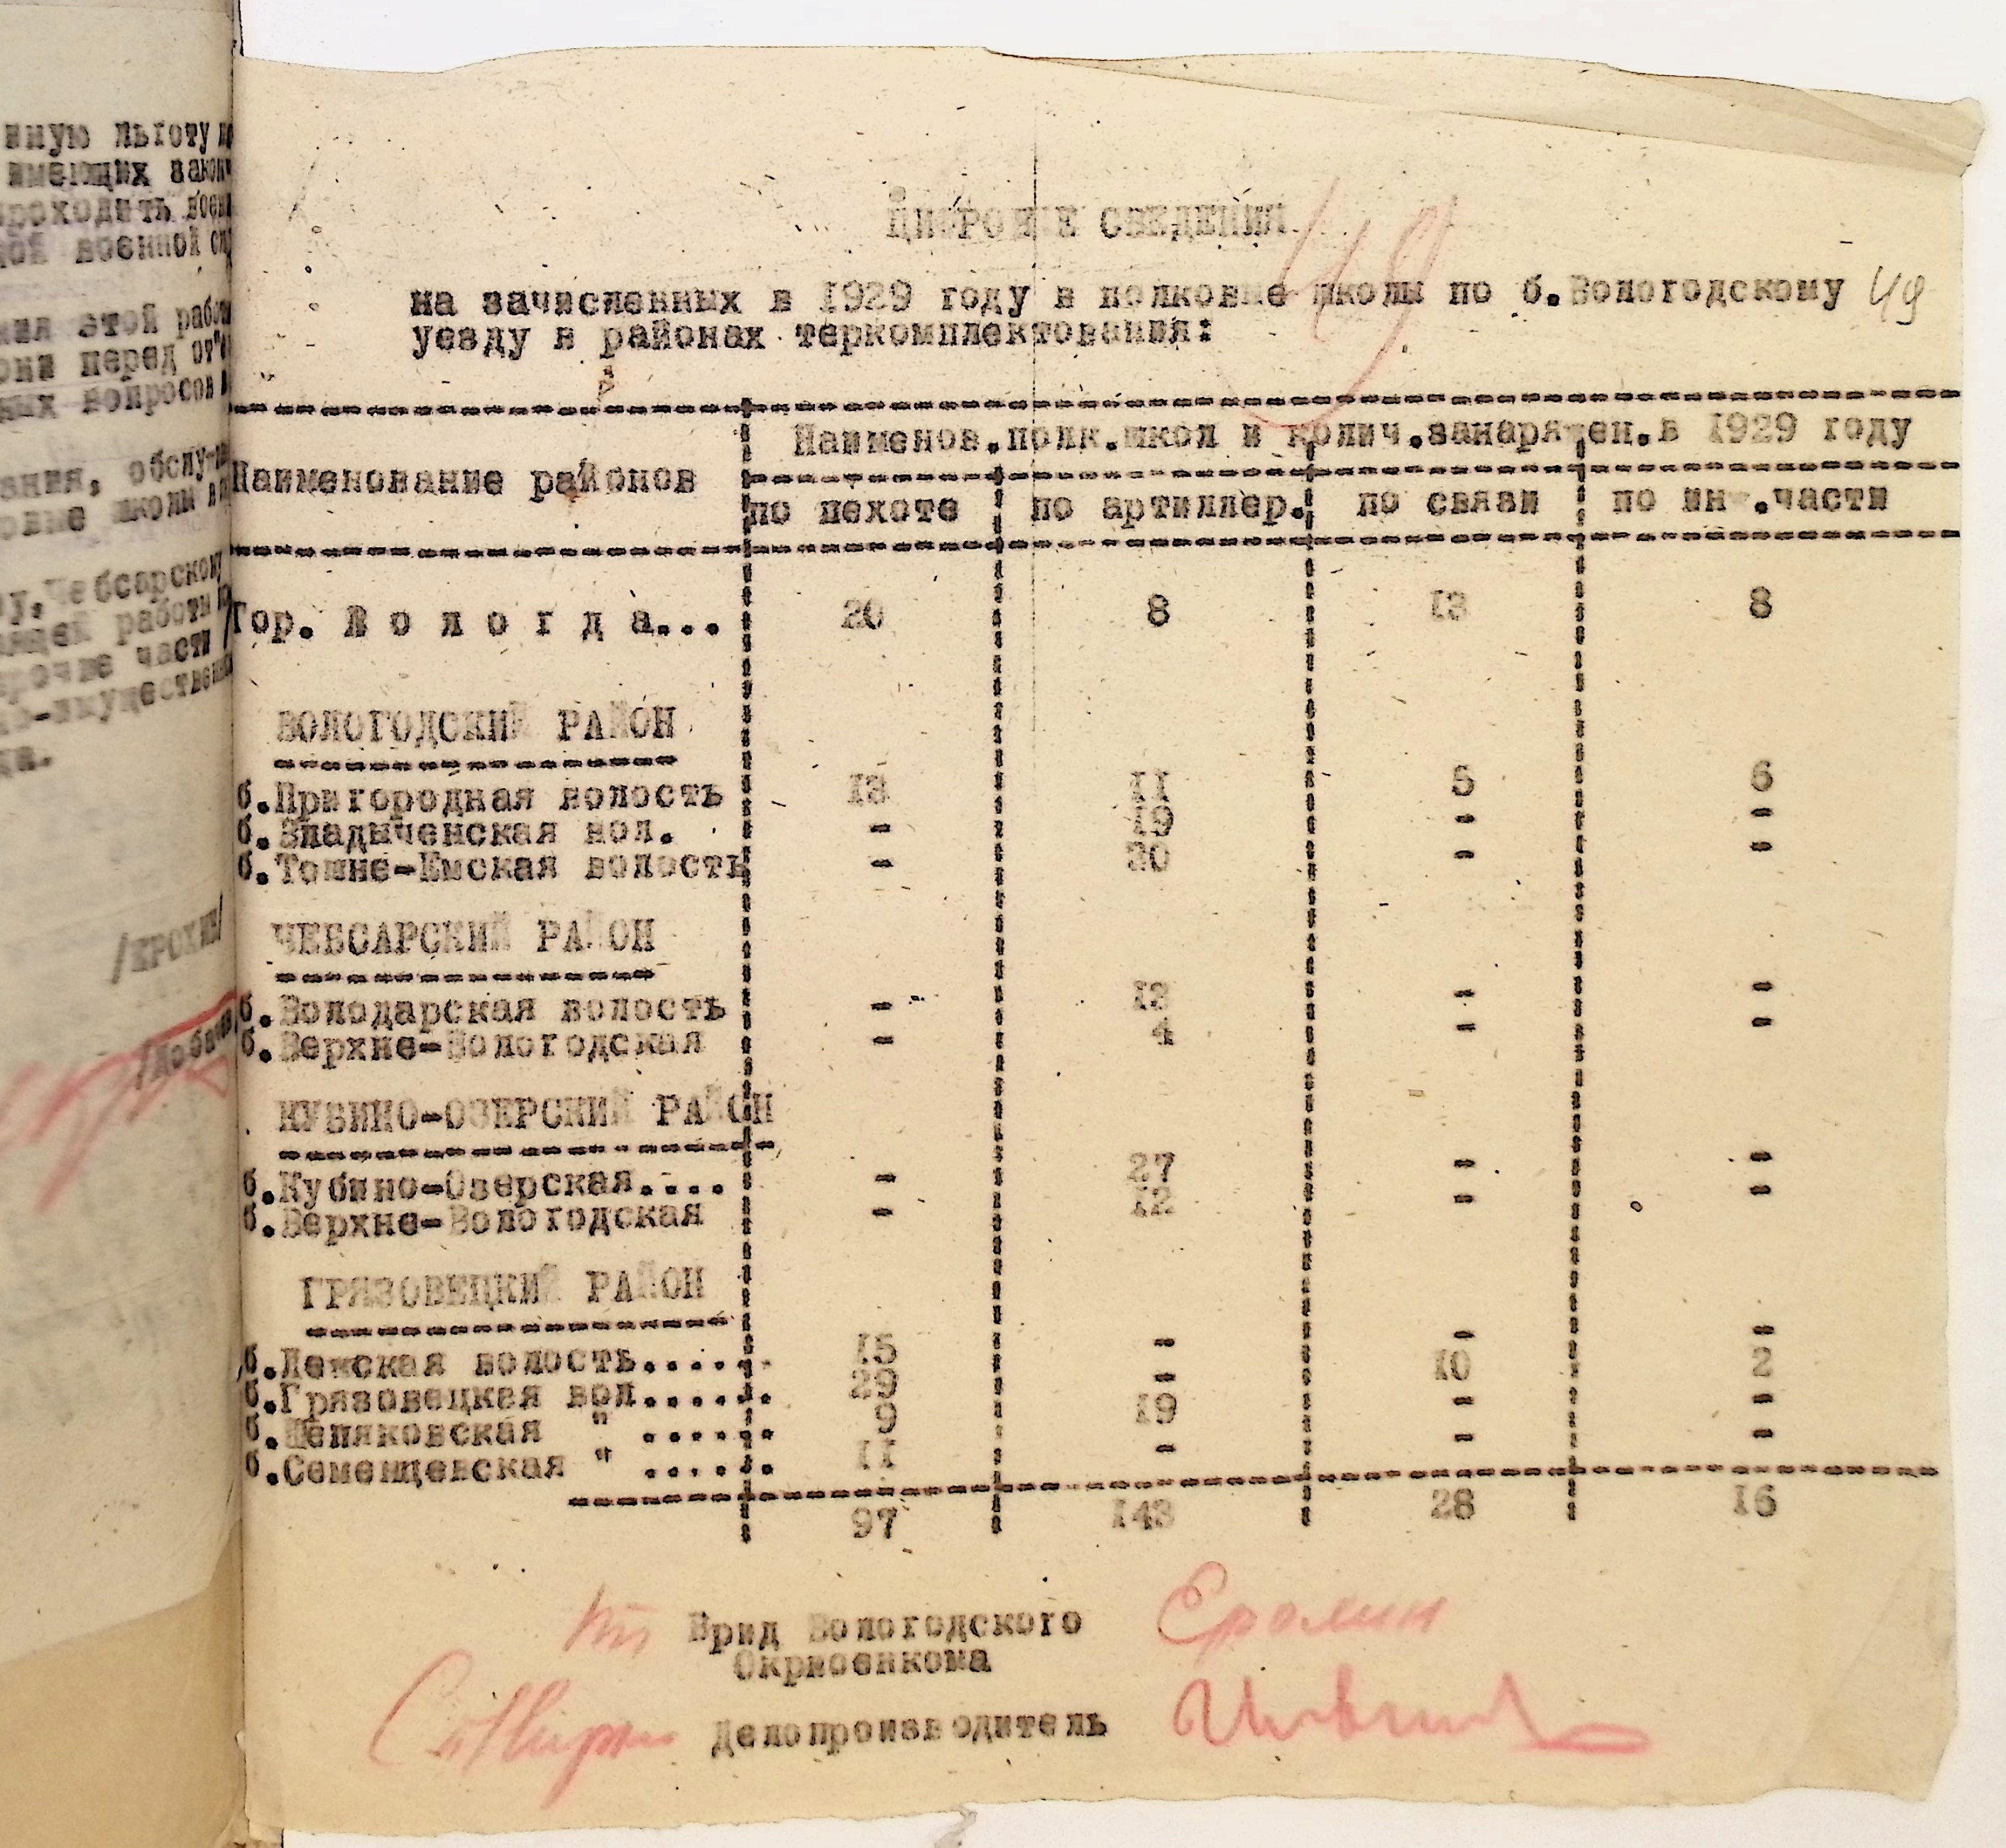 нную льготу
имеющих
проходить
ной военной
ния этой
они перед
ных вопросов
ания,
школы
Чебсарскому
работы
прочие части
да.
ЦИФРОВЫЕ СВЕДЕНИЯ
49
на зачисленных в 1929 году в полковые школы по б.Вологодскому 49
уезду в районах теркомплектования:
Наименование районов
Наименов.полк.школ и колич.занаряжен.в 1929 году
по пехоте по артиллер. по связи по инж.части
Гор. В о л о г д а... 20 8 13 8
ВОЛОГОДСКИЙ РАЙОН
б.Пригородная волость 13 11 5 6
б.Владыченская вол. - 19 - -
б.Тошне-Емская волость - 30 - -
ЧЕБСАРСКИЙ РАЙОН
б.Володарская волость - 13 - -
б.Верхне-Вологодская - 4 - -
КУБИНО-ОЗЕРСКИЙ РАЙОН
б.Кубино-Озерская.... - 27 - -
б.Верхне-Вологодская - 12 - -
ГРЯЗОВЕЦКИЙ РАЙОН
б.Лежская волость...... 15 - - -
б.Грязовецкая вол...... 29 - 10 2
б.Шепяковская " ...... 9 19 - -
б.Семенцевская " ...... 11 - - -
97 143 28 16
Врид Вологодского
Окрвоенкома
Делопроизводитель